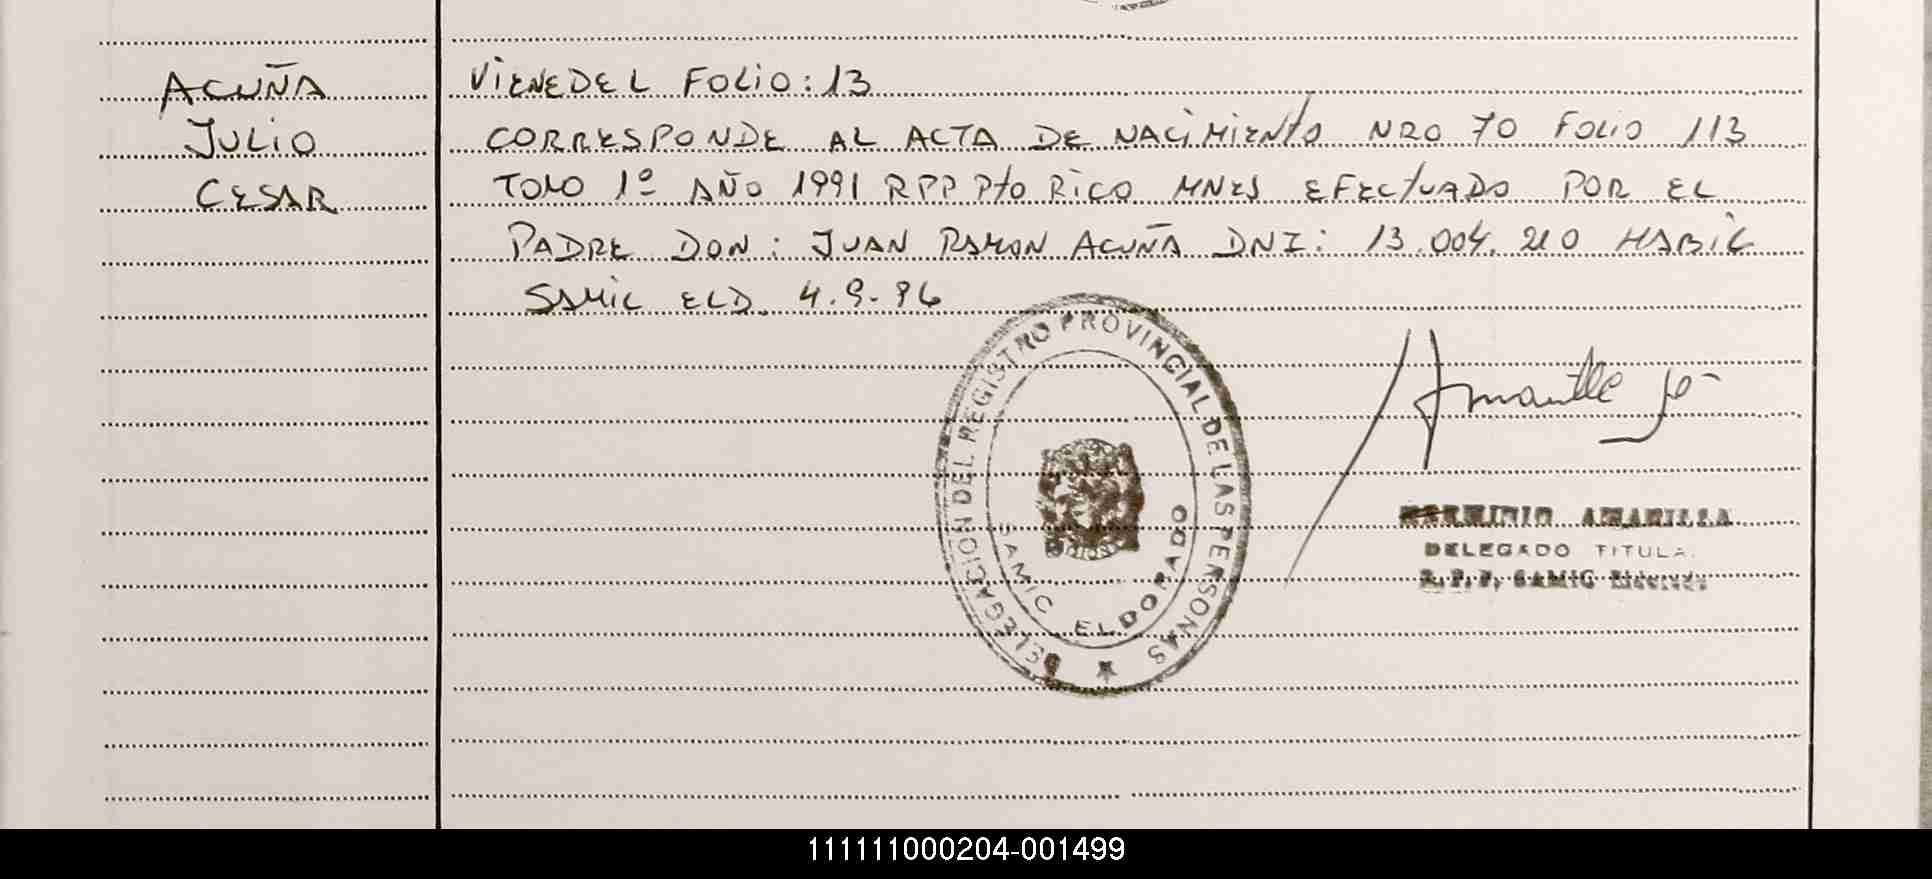 ACUÑA
JULIO
CESAR
VIENE DEL FOLIO: 13
CORRESPONDE AL ACTA DE NACIMIENTO NRO 70 FOLIO 113
TOMO 1º AÑO 1991 RPP Pto RICO MNES EFECTUADO POR EL
PADRE DON: JUAN RAMON ACUÑA DNI: 13.004.210 HABIL
SAMIC ELD. 4.9.96
DELEGACION DEL REGISTRO PROVINCIAL DE LAS PERSONAS
SAMIC ELDORADO
HERMINIO AMARILLA
DELEGADO TITULA.
R. P. P. SAMIC Eldorado
111111000204-001499